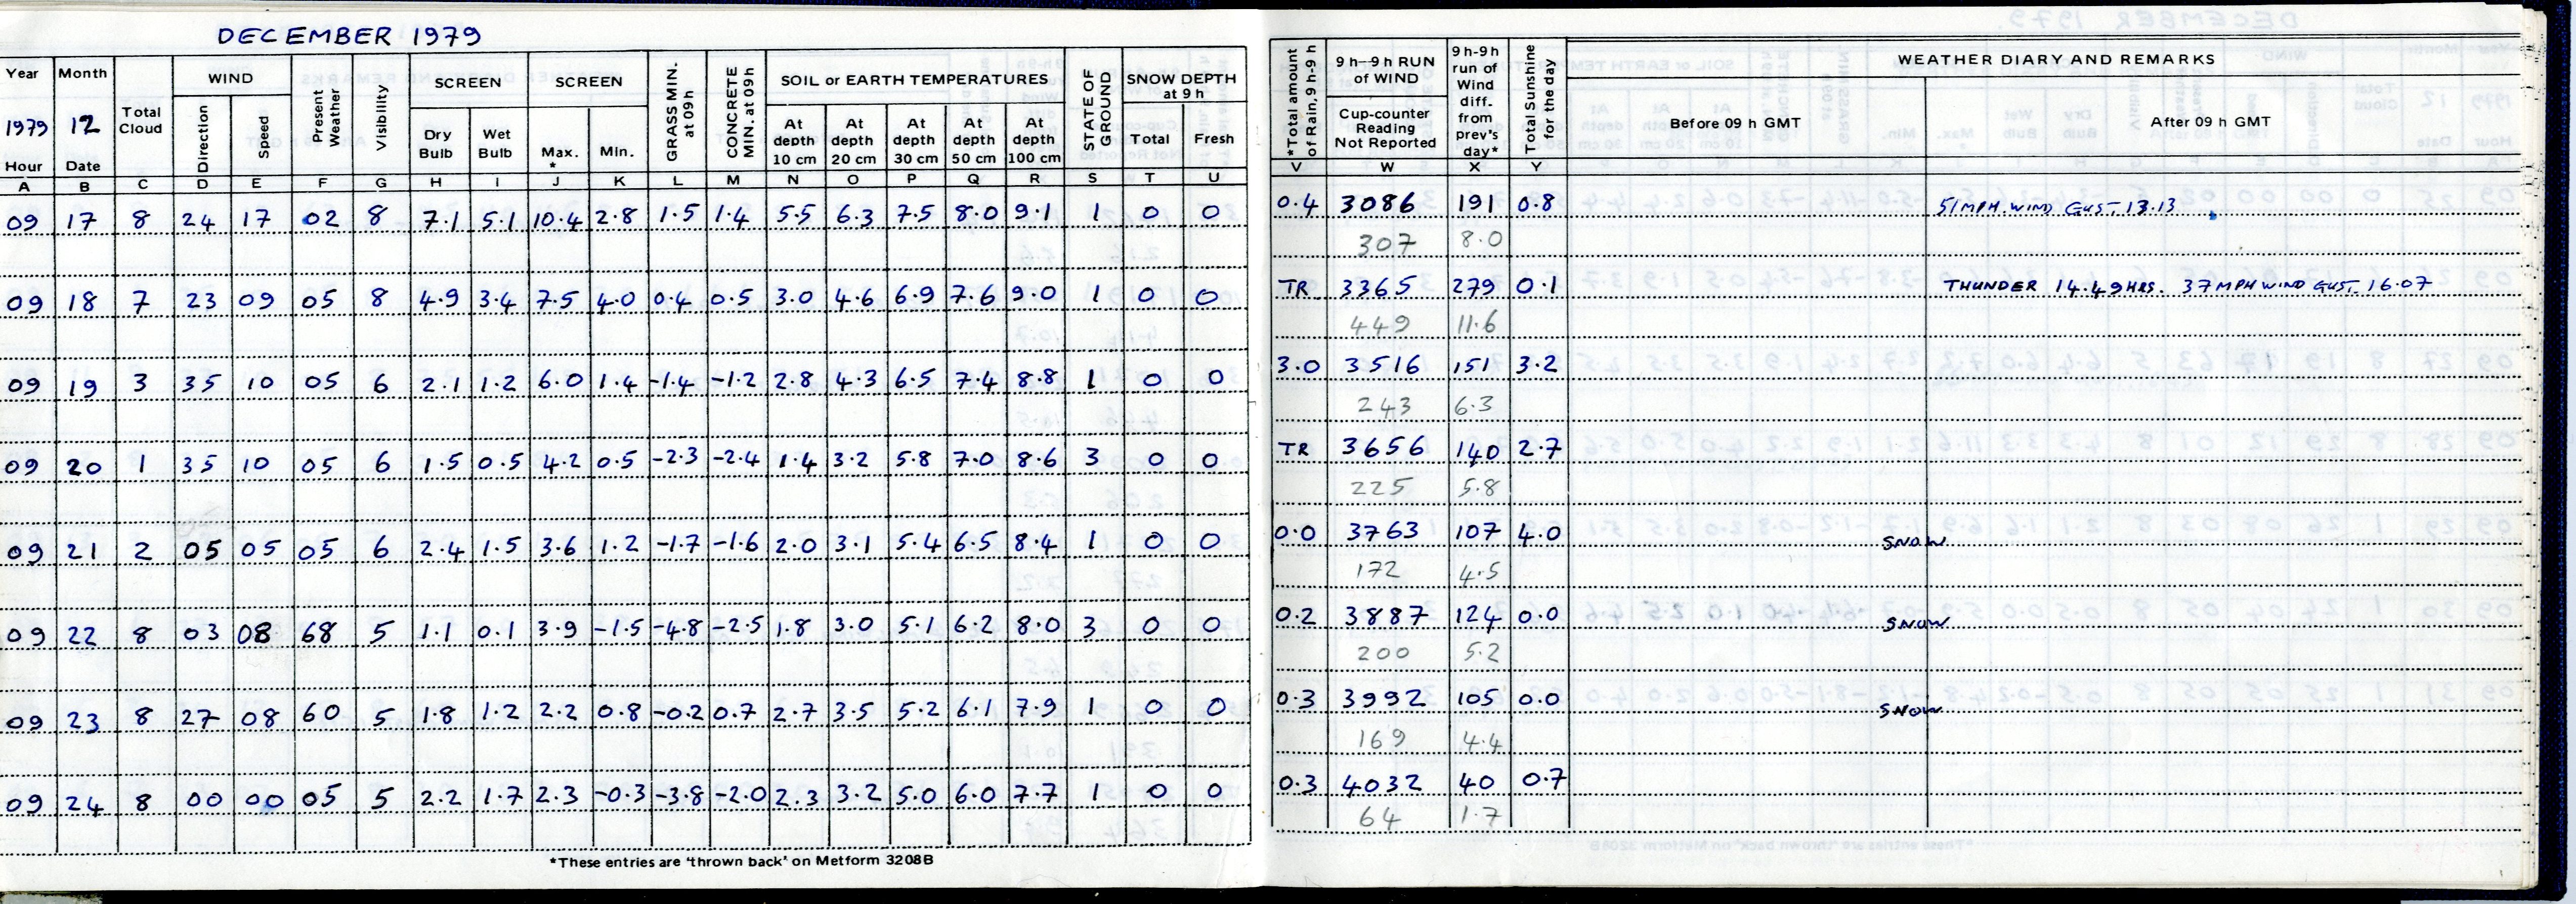 DECEMBER 1979
Year Month WIND SCREEN SCREEN SOIL or EARTH TEMPERATURES SNOW DEPTH at 9 h
1979 12 Total Cloud Direction Speed Present Weather Visibility Dry Bulb Wet Bulb Max. * Min. GRASS MIN. at 09h CONCRETE MIN. at 09h At depth 10 cm At depth 20 cm At depth 30 cm At depth 50 cm At depth 100 cm STATE OF GROUND Total Fresh
Hour Date
A B C D E F G H I J K L M N O P Q R S T U
09 17 8 24 17 02 8 7.1 5.1 10.4 2.8 1.5 1.4 5.5 6.3 7.5 8.0 9.1 1 0 0
09 18 7 23 09 05 8 4.9 3.4 7.5 4.0 0.4 0.5 3.0 4.6 6.9 7.6 9.0 1 0 0
09 19 3 35 10 05 6 2.1 1.2 6.0 1.4 -1.4 -1.2 2.8 4.3 6.5 7.4 8.8 1 0 0
09 20 1 35 10 05 6 1.5 0.5 4.2 0.5 -2.3 -2.4 1.4 3.2 5.8 7.0 8.6 3 0 0
09 21 2 05 05 05 6 2.4 1.5 3.6 1.2 -1.7 -1.6 2.0 3.1 5.4 6.5 8.4 1 0 0
09 22 8 03 08 68 5 1.1 0.1 3.9 -1.5 -4.8 -2.5 1.8 3.0 5.1 6.2 8.0 3 0 0
09 23 8 27 08 60 5 1.8 1.2 2.2 0.8 -0.2 0.7 2.7 3.5 5.2 6.1 7.9 1 0 0
09 24 8 00 00 05 5 2.2 1.7 2.3 -0.3 -3.8 -2.0 2.3 3.2 5.0 6.0 7.7 1 0 0
*These entries are 'thrown back' on Metform 3208B
*Total amount of Rain, 9 h-9 h 9 h-9 h RUN of WIND 9 h-9 h run of Wind diff. from prev's day* Total Sunshine for the day WEATHER DIARY AND REMARKS
Cup-counter Reading Not Reported Before 09 h GMT After 09 h GMT
V W X Y
0.4 3086 191 0.8 51 MPH. WIND GUST 13.13
307 8.0
TR 3365 279 0.1 THUNDER 14.49 HRS. 37 MPH WIND GUST 16.07
449 11.6
3.0 3516 151 3.2
243 6.3
TR 3656 140 2.7
225 5.8
0.0 3763 107 4.0 SNOW
172 4.5
0.2 3887 124 0.0 SNOW
200 5.2
0.3 3992 105 0.0 SNOW
169 4.4
0.3 4032 40 0.7
64 1.7